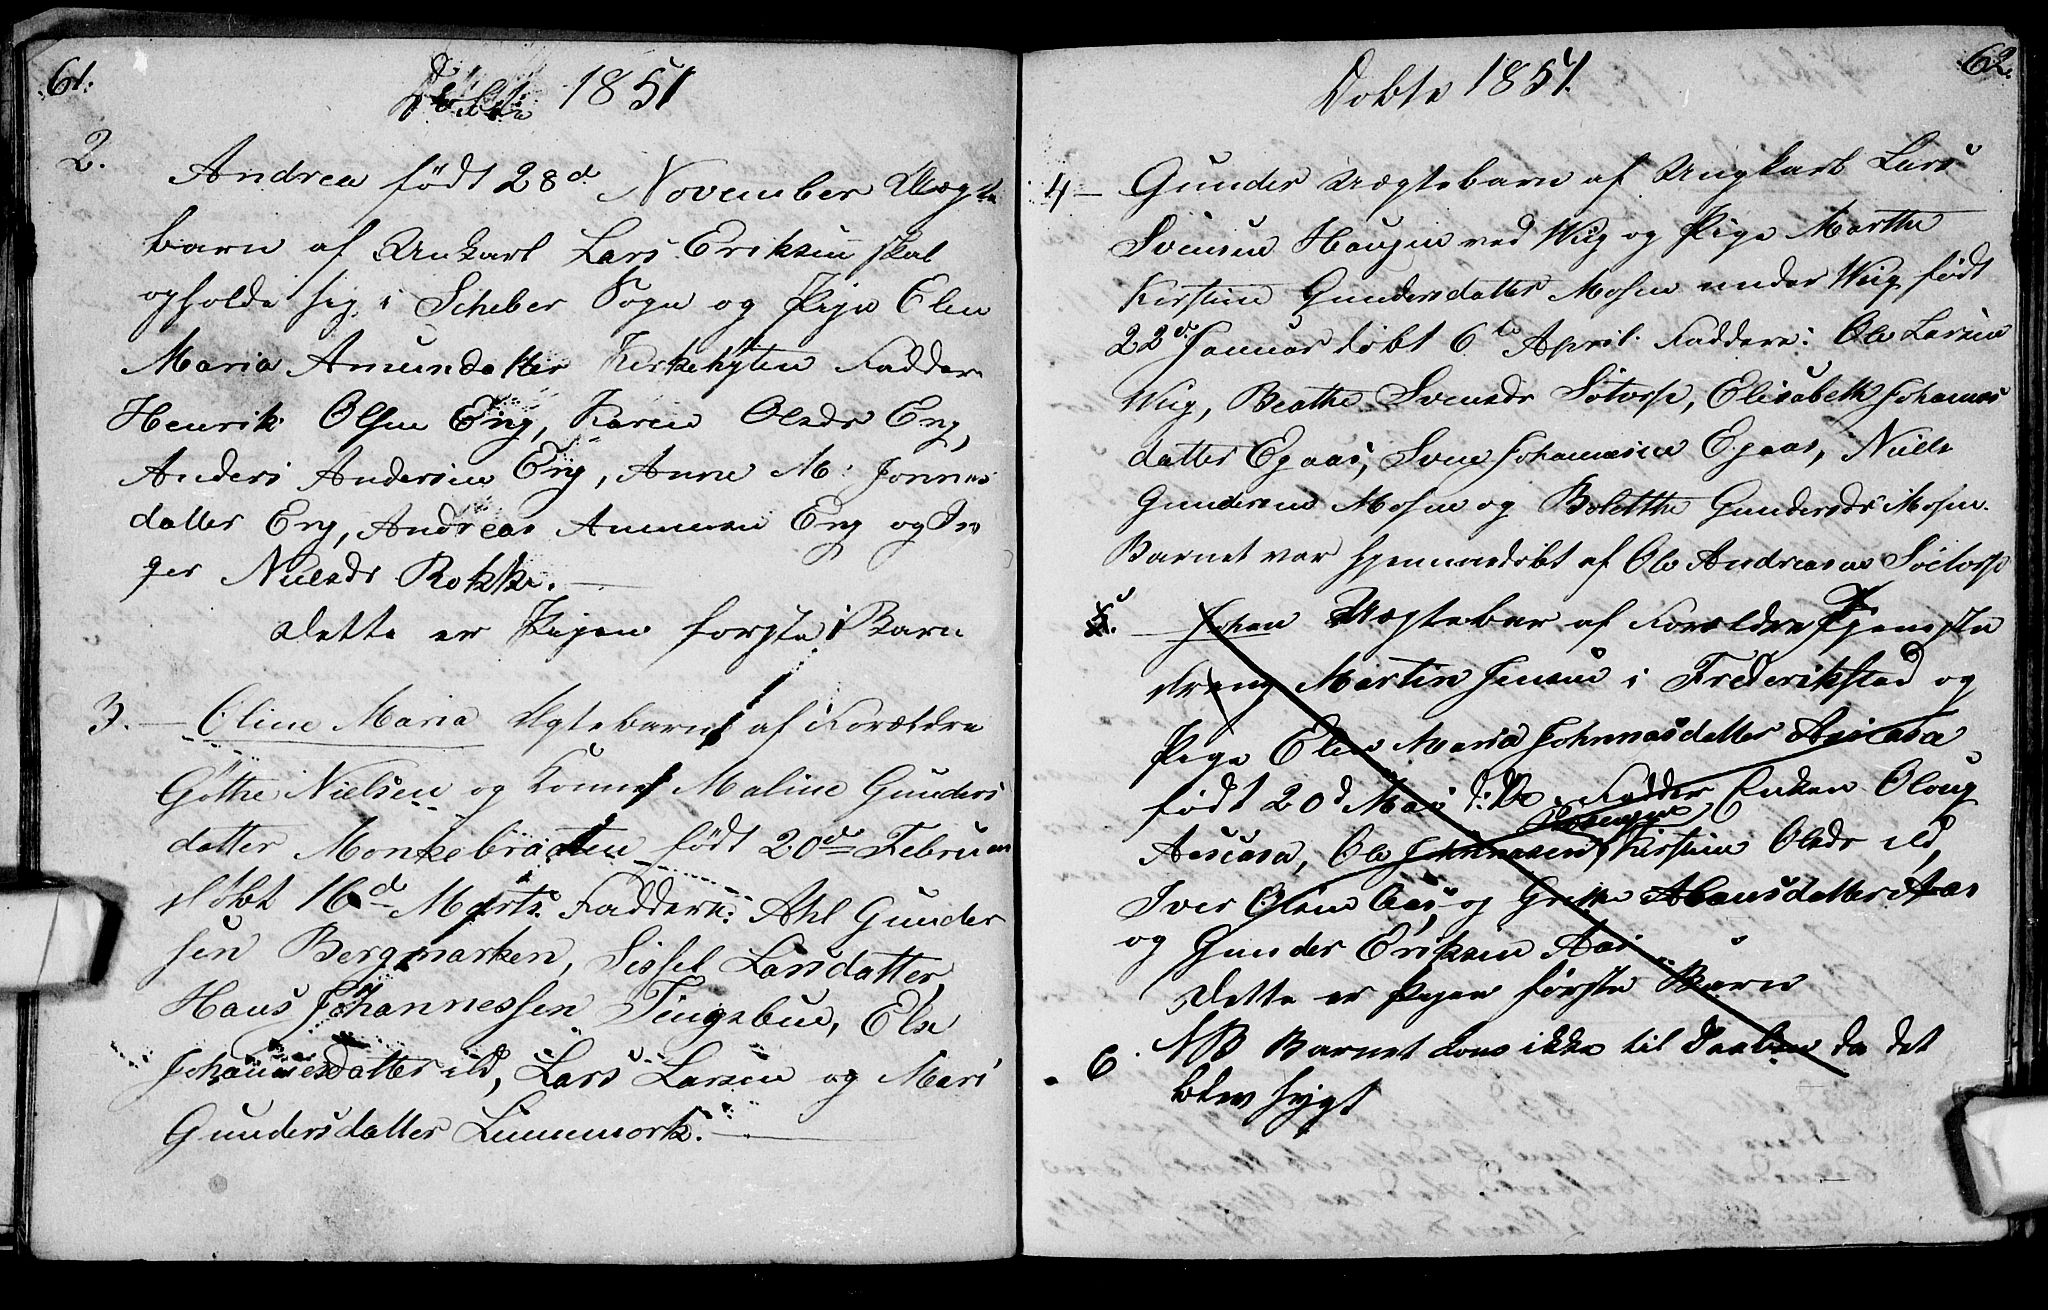 61.
Døbte 1851
2.
Andrea født 28d November Uægte
barn af Unkarl Lars Eriksen skal
opholde sig i Scheber Sogn og Pige Elen
Maria Amundatter Kirkehyten Faddere
Henrik Olsen Eng, Karen Olsdr Eng,
Anders Andersen Eng, Anne M: Jonnes
datter Eng, Andreas Amunsen Eng og In
ger Nielsdr Rokke.
dette er Pigen forste Barn
3. Oline Maria Ægtebarn af Forældre
Göthe Nielsen og Konne Maline Gunders
datter Monkebråtten født 20de Februar
døbt 16d Marts. Faddere: Axl Gunder
sen Bergmarken, Sissel Larsdatter,
Hans Johannessen Tingsbue, Else
Johannesdatter ild, Lars Larsen og Mari
Gundersdatter Linnemork.
62.
Dobte 1851.
4 Gunder Uægtebarn af Ungkarl Lars
Svensen Haugen ved Wiig og Pige Marthe
Kirstine Gundersdatter Mosen under Wiig født
22d Januar døbt 6te April. Faddere: Ole Larsen
Wiig, Beathe Svensdr Sötorp, Elisabeth Johannes
datter Egaas, Sven Johannesen Egaas, Niels
Gundersen Mosen og Bolette Gundersdr Mosen.
Barnet var hjemmedøbt af Ole Andreasen Söetorp
5. Johan Uægtebar af Forældre Tjeneste
dreng Martin Jensen i Frederikstad og
Pige Elen Maria Johnnasdatter Aascasa
født 20d Mai Fadder Enken Oloug
Aascasa, Ole Johnnasen Kirstine Olsdr ild,
Iver Olsen Aas, og Grethe Hansdatter Aas
og Gunder Eriksen Aas.
dette er Pigen første Barn
6. NB Barnet kom ikke til Daaben da det
blev sygt